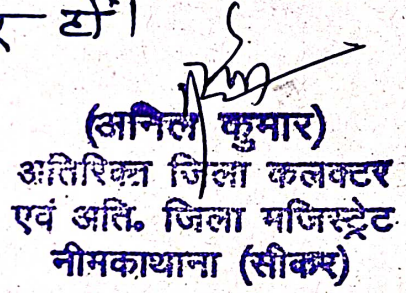 हों।
(अनिल कुमार)
अतिरिक्त जिला कलक्टर
एवं अति० जिला मजिस्ट्रेट
नीमकाथाना (सीकर)